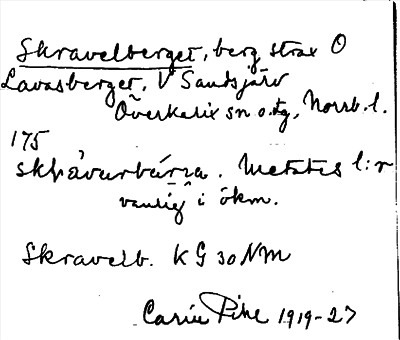 Skravelberget, berg strax O
Lavasberget, V Sandsjärv
Överkalix sn o. tg, Norrb. l.
175
skrávurbárra. Metates l:r
vanlig i ökm.
Skravelb. KG 30 NM
Carin Pihl 1919-27